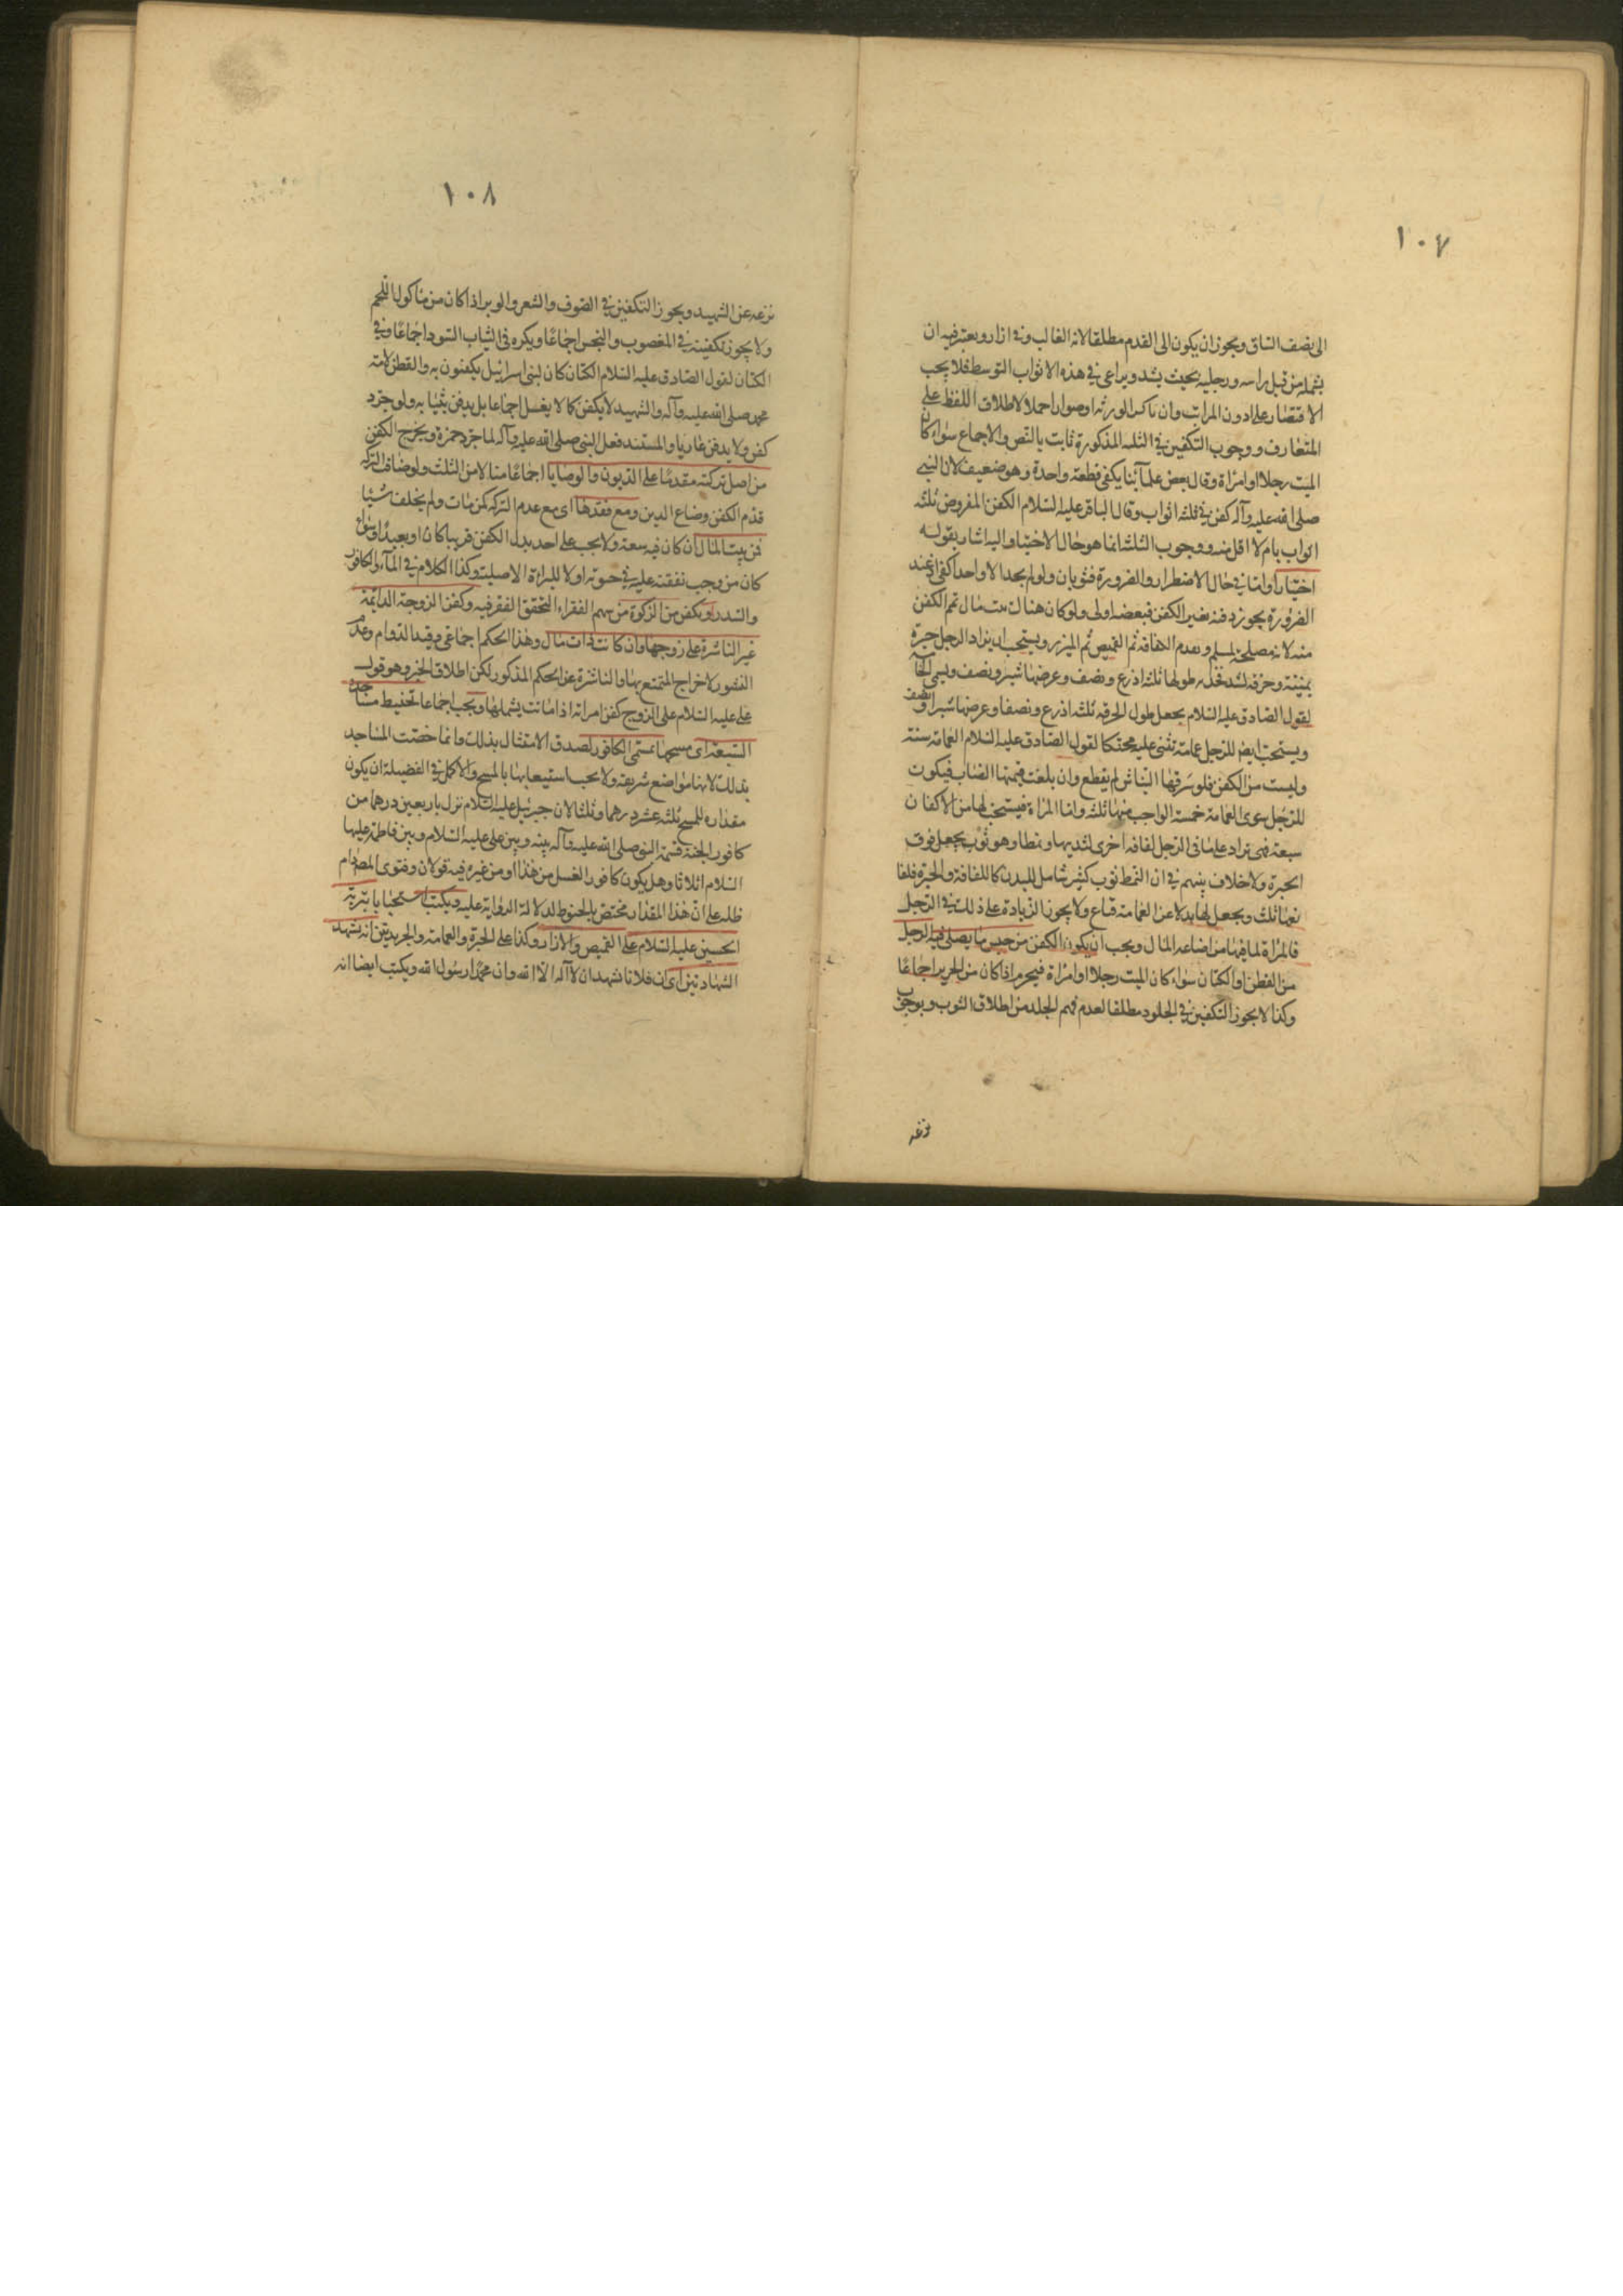 ١٠٧
الى نصف الساق ويجوز ان يكون الى القدم مطلقا لانه الغالب وفي ازار ويعتبر فيه ان
يشمله من قبل راسه ورجليه بحيث يشد ويراعي في هذه الاثواب التوسط فلا يجب
الاقتصار على ادون المراتب وان ناكس الورثة او صواراحملا لاطلاق اللفظ على
المتعارف ووجوب التكفين في الثلثه المذكورة ثابت بالنص والاجماع سواء كان
الميت رجلا او امراة وقال بعض علمائنا يكفي قطعة واحدة وهو ضعيف لان النبي
صلى الله عليه وآله كفن في ثلثه اثواب وقال الباقر عليه السلام الكفن المفروض ثلثه
اثواب تام لا اقل منه ووجوب الثلث انما هو حال الاختيار واليه اشار بقوله
اختيارا واما في حال الاضطرار والضرورة فثوبان ولو لم يجد الا واحدا كفى وعند
الضرورة يجوز دفنه بغير الكفن فبعضه اولى ولو كان هناك بيت مال تمم الكفن
منه لانه مصلحة لمسلم ويقدم اللفافة ثم القميص ثم الميزر ويستحب ان يزاد الرجل حبرة
يمنية وخرقه لشد فخذه طولها ثلثه اذرع ونصف وعرضها شبر ونصف ويسمى الخامسة
لقول الصادق عليه السلام يجعل طول الخرقه ثلثه اذرع ونصفا وعرضها شبرا ونصف
ويستحب ايض للرجل عمامة تثنى عليه محنكا لقول الصادق عليه السلام العمامة سنة
وليست من الكفن فلو سرقها النباش لم يقطع وان بلغت قيمتها النصاب فيكون
للرجل سوى العمامة خمسة الواجب منها ثلثه واما المراة فيستحب لها من الاكفان
سبعة فهي تزاد على ما في الرجل لفافه اخرى لثدييها ونمطا وهو ثوب يجعل فوق
الحبرة ولا خلاف بينهم في ان النمط ثوب كثير شامل للبدن كاللفافة والحبرة فلفا
نعها ثلث ويجعل لها بدلا عن العمامة قناع ولا يجوز الزيادة على ذلك في الرجل
فالمراة لما فيها من اضاعه المال ويجب ان يكون الكفن من جنس ما يصلى فيه الرجل
من القطن او الكتان سواء كان الميت رجلا او امراة فيحرم اذا كان من الحرير اجماعا
وكذا لا يجوز التكفين في الجلود مطلقا لعدم فهم الجلد من اطلاق الثوب وبوجوب
نزعه
١٠٨
نزعه عن الشهيد ويجوز التكفين في الصوف والشعر والوبر اذا كان من ماكول اللحم
ولا يجوز تكفينه في المغصوب والنجس اجماعا ويكره في الثياب السود اجماعا وفي
الكتان لقول الصادق عليه السلام الكتان كان لبني اسرائيل يكفنون به والقطن لامة
محمد صلى الله عليه وآله والشهيد لا يكفن كما لا يغسل اجماعا بل يدفن بثيابه ولو جرد
كفن ولا يدفن عاريا والمستند فعل النبي صلى الله عليه وآله لما جرد حمزة ويخرج الكفن
من اصل تركته مقدما على الديون والوصايا اجماعا منا لا من الثلث ولو ضاق التركة
قدم الكفن وضاع الدين ومع فقدها اى مع عدم التركه كمن مات ولم يخلف شيئا
فمن بيت المال ان كان فيه سعة ولا يجب على احد بذل الكفن قريبا كان او بعيدا وسواء
كان من وجب نفقته عليه في حيوته اولا للبراءة الاصلية وكذا الكلام في الماء والكافور
والسدر او يكفن من الزكوة من سهم الفقراء لتحقق الفقر فيه وكفن الزوجة الدائمة
غير الناشزة على زوجها وان كانت ذات مال وهذا الحكم اجماعي وقيد الدوام وعدم
النشوز لاخراج المتمتع بها والناشزة عن الحكم المذكور لكن اطلاق الخبر وهو قول
علي عليه السلام على الزوج كفن امراته اذا ماتت يشملها ويجب اجماعا تحنيط مساجده
السبعة اى مسحها بمسمى الكافور لصدق الامتثال بذلك وانما خصت المساجد
بذلك لانها مواضع شريعة ولا يجب استيعابها بالمسح والاكمل في الفضيلة ان يكون
مقداره للمسح ثلثه عشر درهما وثلثا لان جبرئيل عليه السلام نزل باربعين درهما من
كافور الجنة قسمة النبي صلى الله عليه وآله بينه وبين علي عليه السلام وبين فاطمة عليها
السلام اثلاثا وهل يكون كافور الغسل من هذا او من غيره فيه قولان وفتوى المص دام
ظله على ان هذا المقدار مختص بالحنوط لدلالة الرواية عليه ويكتب استحبابا بتربة
الحسين عليه السلام على القميص والازار وكذا على الحبرة والعمامة والجريدتين انه يشهد
الشهادتين اى ان فلانا شهد ان لا اله الا الله وان محمدا رسول الله ويكتب ايضا انه